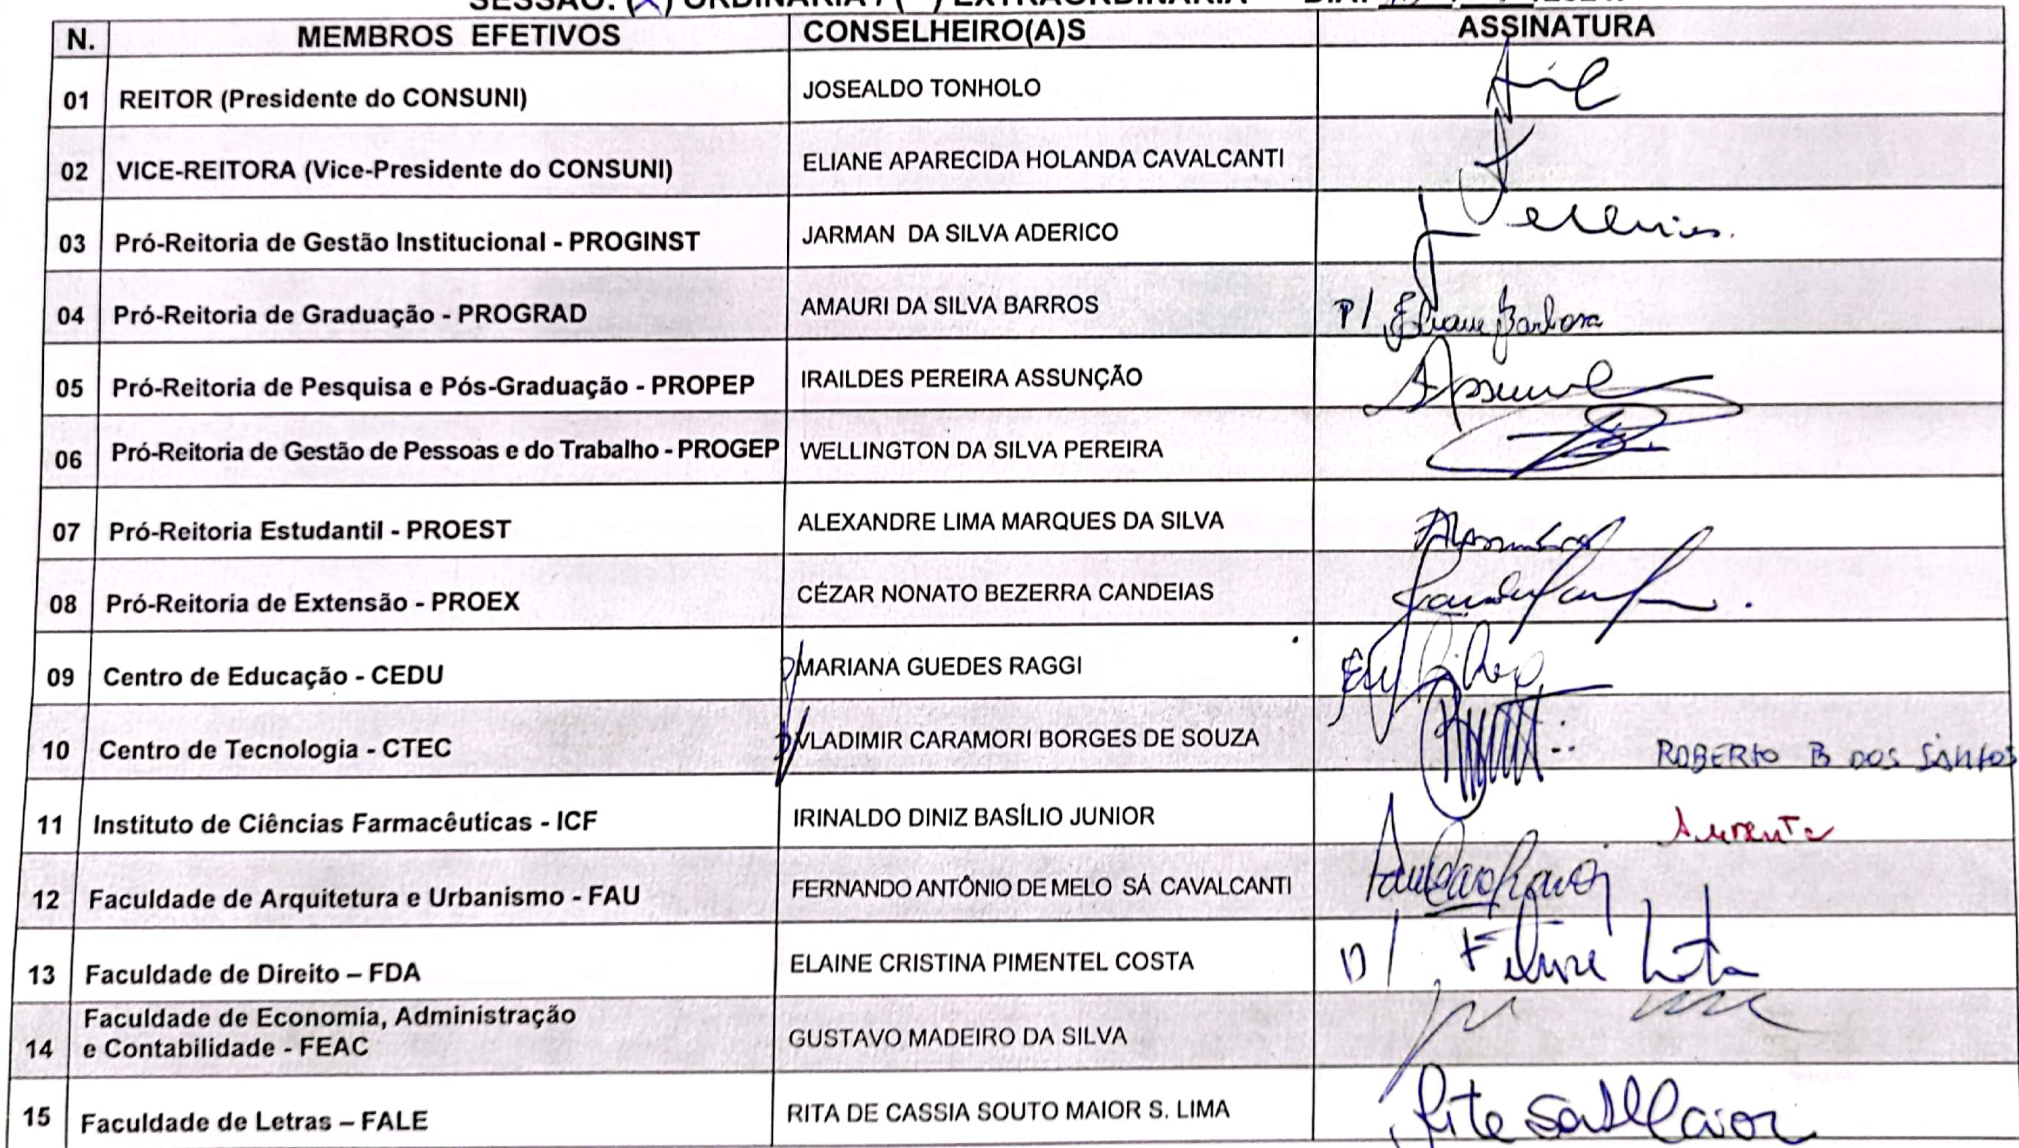 SESSÃO: (X) ORDINÁRIA / ( ) EXTRAORDINÁRIA DIA:
N. MEMBROS EFETIVOS CONSELHEIRO(A)S ASSINATURA
01 REITOR (Presidente do CONSUNI) JOSEALDO TONHOLO
02 VICE-REITORA (Vice-Presidente do CONSUNI) ELIANE APARECIDA HOLANDA CAVALCANTI
03 Pró-Reitoria de Gestão Institucional - PROGINST JARMAN DA SILVA ADERICO
04 Pró-Reitoria de Graduação - PROGRAD AMAURI DA SILVA BARROS P/ Eliane Barbosa
05 Pró-Reitoria de Pesquisa e Pós-Graduação - PROPEP IRAILDES PEREIRA ASSUNÇÃO
06 Pró-Reitoria de Gestão de Pessoas e do Trabalho - PROGEP WELLINGTON DA SILVA PEREIRA
07 Pró-Reitoria Estudantil - PROEST ALEXANDRE LIMA MARQUES DA SILVA
08 Pró-Reitoria de Extensão - PROEX CÉZAR NONATO BEZERRA CANDEIAS
09 Centro de Educação - CEDU P/ MARIANA GUEDES RAGGI
10 Centro de Tecnologia - CTEC P/ VLADIMIR CARAMORI BORGES DE SOUZA ROBERTO B DOS SANTOS
11 Instituto de Ciências Farmacêuticas - ICF IRINALDO DINIZ BASÍLIO JUNIOR Ausente
12 Faculdade de Arquitetura e Urbanismo - FAU FERNANDO ANTÔNIO DE MELO SÁ CAVALCANTI
13 Faculdade de Direito – FDA ELAINE CRISTINA PIMENTEL COSTA P/ Filipe Lôbo
Faculdade de Economia, Administração
14 e Contabilidade - FEAC GUSTAVO MADEIRO DA SILVA
15 Faculdade de Letras – FALE RITA DE CASSIA SOUTO MAIOR S. LIMA Rita Souto Maior